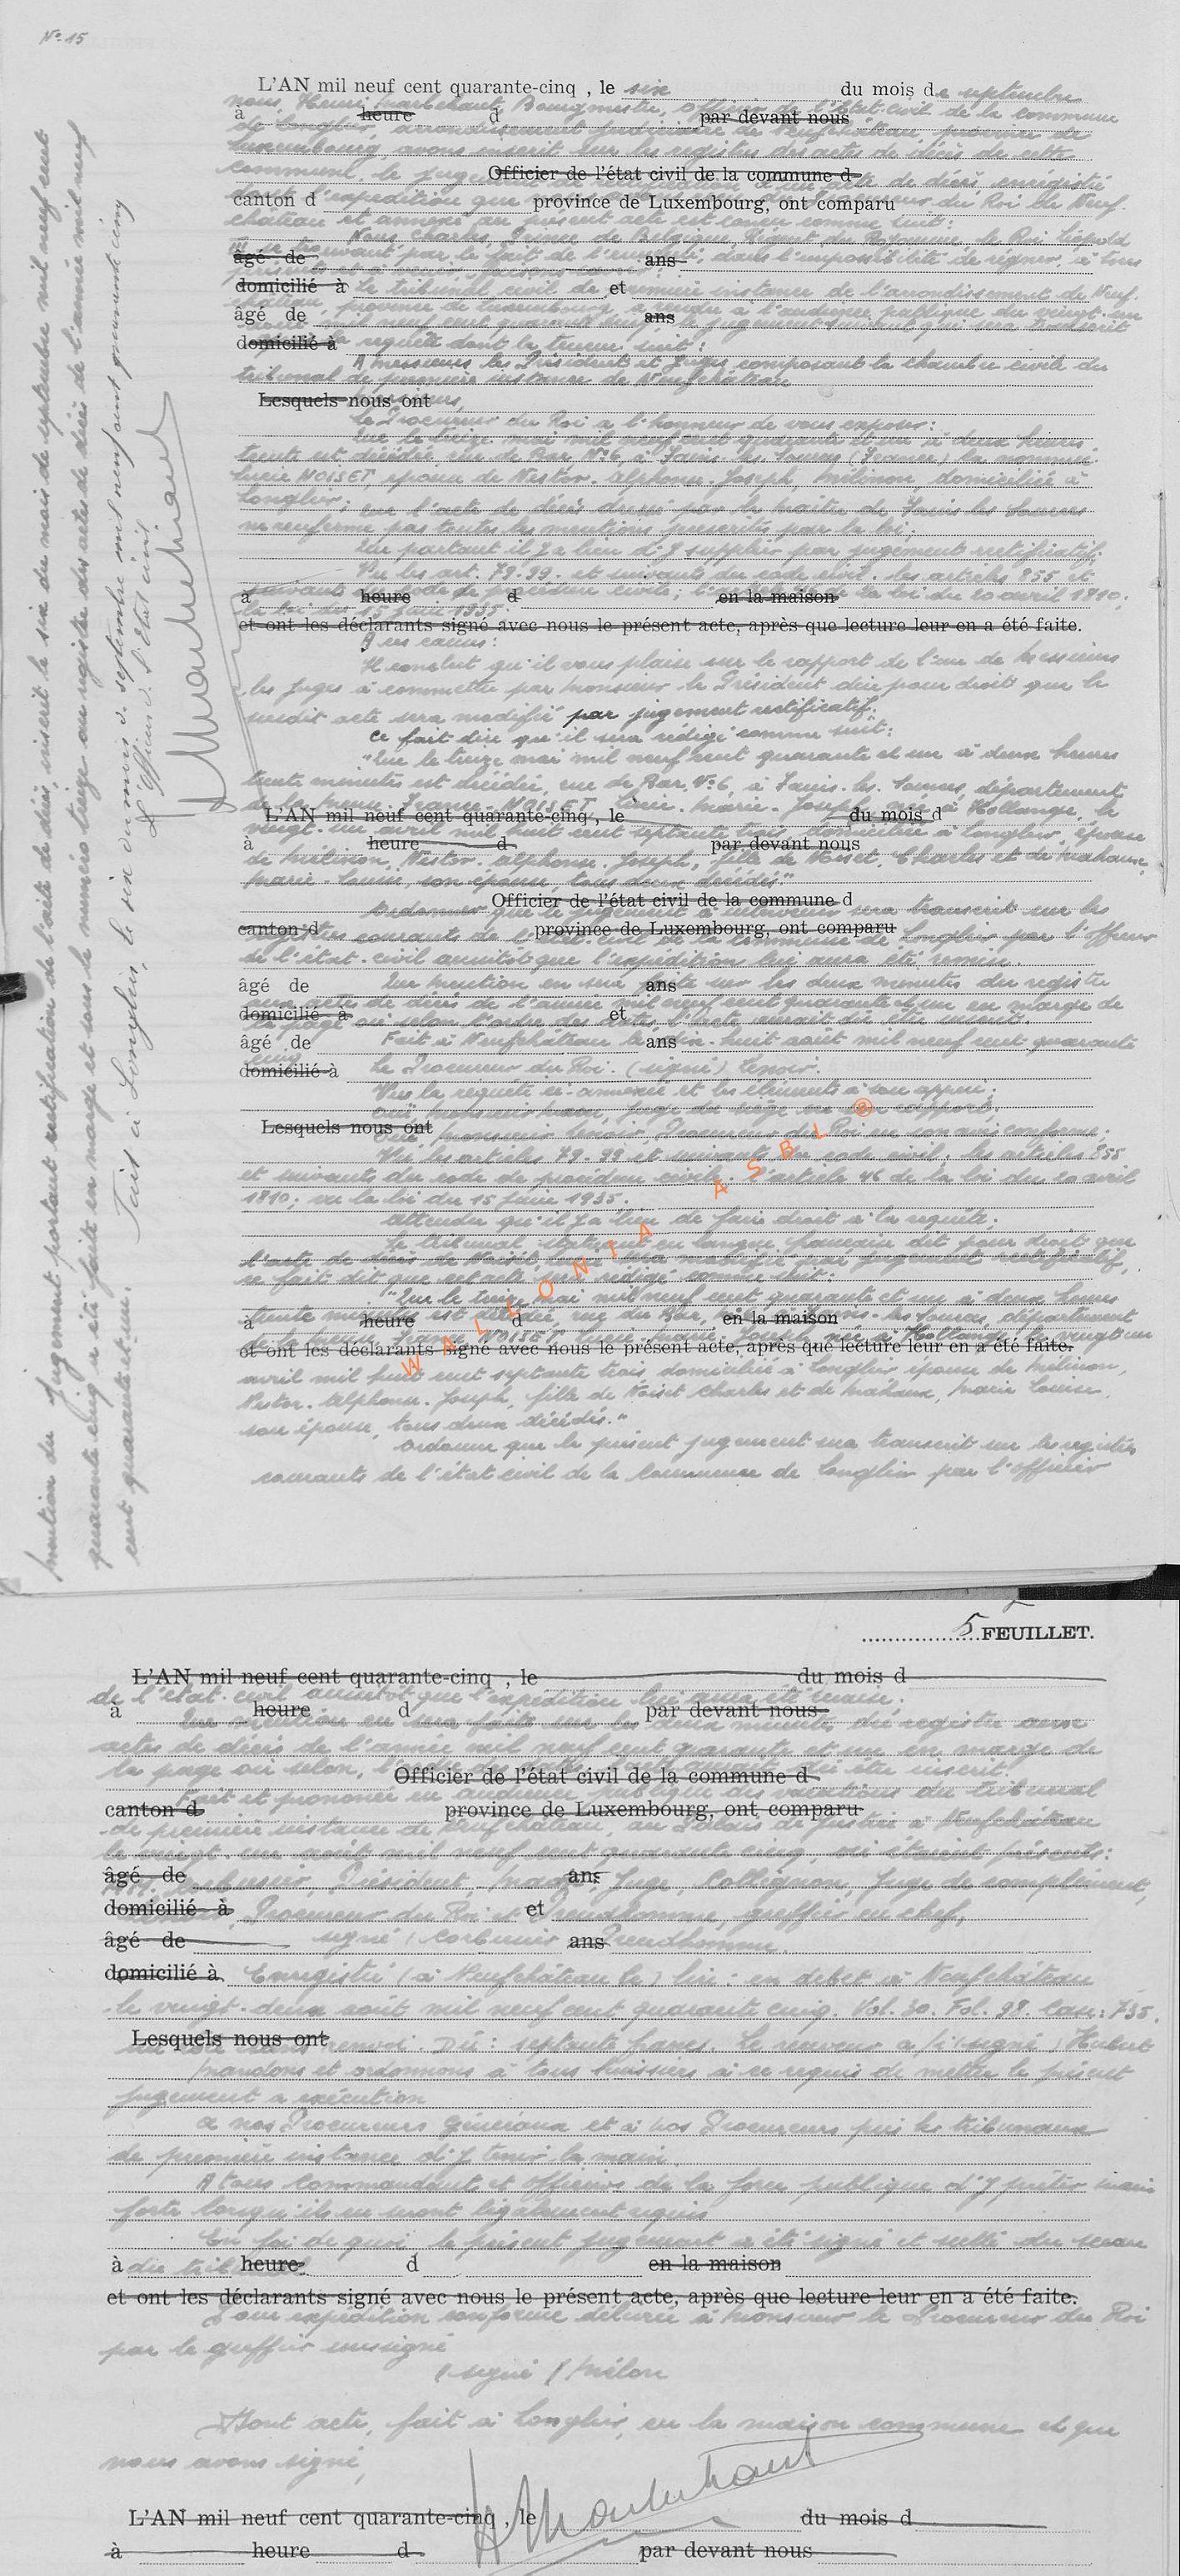 N° 15
L'AN mil neuf cent quarante-cinq , le six du mois de septembre
nous, Henri Bourgmestre, Officier de l'Etat Civil de la commune
à heure d par devant nous
de Longlier, arrondissement de Neufchâteau province de
Luxembourg, avons inscrit sur les registres des actes de décès de cette
commune, le jugement de décès enregistré
Officier de l'état civil de la commune d
dont l'expédition du Roi de Neuf-
canton d province de Luxembourg, ont comparu
château et annexé au présent acte est conçu comme suit:
Nous Charles, Prince de Belgique, Régent du Royaume, le Roi Léopold
III se trouvant par le fait de l'ennemi, dans l'impossibilité de régner, à tous
âgé de ans
domicilié à et
Le tribunal civil de première instance de l'arrondissement de Neuf-
château, province de Luxembourg, a rendu à l'audience publique du vingt-un
âgé de ans
août mil neuf cent quarante cinq le jugement transcrit
domicilié à
requête dont la teneur suit:
A Messieurs les Président et Juges composant la chambre civile du
tribunal de première instance de Neufchâteau
Lesquels nous ont
Messieurs,
Le Procureur du Roi a l'honneur de vous exposer:
Que le treize mai mil neuf cent quarante et un à deux heures
trente est décédée rue de Bar N°6, à Fains-les-Sources (France) la nommée
Lucie NOISET épouse de Nestor-Alphonse-Joseph, Mélinon, domiciliée à
Longlier;
que l'acte de décès dressé par la mairie de Fains les Sources
ne renferme pas toutes les mentions prescrites par la loi;
Que partant il y a lieu d'y suppléer par jugement rectificatif;
Vu les art. 79.99. et suivants du code civil. les articles 855 et
suivants du code de procédure civile; la loi du 20 avril 1810;
à heure d en la maison
la loi du 15 juin 1935
et ont les déclarants signé avec nous le présent acte, après que lecture leur en a été faite.
A ces causes:
Il conclut qu'il vous plaise sur le rapport de l'un de Messieurs
les Juges à commettre par Monsieur le Président dire pour droit que le
susdit acte sera modifié par jugement rectificatif.
Ce fait dire qu'il sera rédigé comme suit:
"Que le treize mai mil neuf cent quarante et un à deux heures
trente minutes est décédée, rue de Bar N°6, à Fains-les-Sources, département
de la Meuse, France, NOISET Lucie-Marie-Joseph, née à Hollange, le
L'AN mil neuf cent quarante-cinq , le du mois d
vingt-un avril mil huit cent septante trois, domiciliée à Longlier, épouse
à heure d par devant nous
de Mélinon, Nestor-Alphonse-Joseph, fille de Noiset, Charles et de Mahaux,
Marie-Louise, son épouse, tous deux décédés."
Officier de l'état civil de la commune d
Ordonner que le jugement à intervenir sera transcrit sur les
canton d province de Luxembourg, ont comparu
registres courants de l'état-civil de la commune de Longlier par l'officier
de l'état-civil aussitôt que l'expédition lui aura été remise.
âgé de ans
Que mention en sera faite sur les deux minutes du registre
aux actes de décès de l'année mil neuf cent quarante et un en marge de
domicilié à et
la page où selon l'ordre des dates, l'acte aurait dû être inscrit.
âgé de ans
Fait à Neufchâteau le dix-huit août mil neuf cent quarante
cinq
domicilié à
Le Procureur du Roi. (signé) Lenoir.
Vu la requête ci-annexée et les éléments à son appui;
Lesquels nous ont
Ouï Monsieur Lenoir, Procureur du Roi en son avis conforme;
Vu les articles 79.99 et suivants du code civil, les articles 855
et suivants du code de procédure civile. l'article 46 de la loi du 20 avril
1810; vu la loi du 15 Juin 1935.
Attendu qu'il y a lieu de faire droit à la requête;
Le tribunal statuant en langue française dit pour droit que
l'acte de décès de Noiset, sera modifié par jugement rectificatif,
ce fait dit que cet acte sera rédigé comme suit:
"Que le treize mai mil neuf cent quarante et un à deux heures
trente minutes est décédée, rue de Bar, N°6, à Fains-les-Sources, département
à heure d en la maison
de la Meuse, France, NOISET Lucie-Marie-Joseph née à Hollange, le vingt un
et ont les déclarants signé avec nous le présent acte, après que lecture leur en a été faite.
avril mil huit cent septante trois, domiciliée à Longlier épouse de Mélinon,
Nestor-Alphonse-Joseph, fille de Noiset Charles et de Mahaux, Marie Louise,
son épouse, tous deux décédés."
Ordonne que le présent jugement sera transcrit sur les registres
courants de l'état civil de la Commune de Longlier par l'officier
Mention du jugement portant rectification de l'acte de décès inscrit le six du mois de septembre mil neuf cent
quarante cinq a été faite en marge et sous le numéro treize au registre des actes de décès de l'année mil neuf
cent quarante et un.
Fait à Longlier, le six du mois de septembre mil neuf cent quarante cinq
L'Officier de l'Etat civil
WALLONIA ASBL ®
5 FEUILLET.
L'AN mil neuf cent quarante-cinq , le du mois d
de l'état-civil aussitôt que l'expédition lui aura été remise.
à heure d par devant nous
Que mention en sera faite sur les deux minutes du registre aux
actes de décès de l'année mil neuf cent quarante et un en marge de
la page où selon, l'ordre des dates, l'acte aurait dû être inscrit.
Officier de l'état civil de la commune d
Fait et prononcé en audience publique du tribunal
canton d province de Luxembourg, ont comparu
de première instance de Neufchâteau, au Palais de Justice à Neufchâteau
le vingt-un août mil neuf cent quarante cinq, où étaient présents:
âgé de ans
Président, Juge, Collignon, Juge de complément,
domicilié à et
Procureur du Roi et Preudhomme, greffier en chef,
âgé de ans
signé Preudhomme.
domicilié à
Enregistré (à Neufchâteau le) lire: en débet à Neufchâteau
le vingt-deux août mil neuf cent quarante cinq. Vol. 30. Fol. 98. Case: 735.
Lesquels nous ont
renvoi. Dû: septante francs. Le receveur a/i (signé) Hubert
Mandons et ordonnons à tous huissiers à ce requis de mettre le présent
jugement à exécution
A nos Procureurs Généraux et à nos Procureurs près les tribunaux
de première instance d'y tenir la main.
A tous commandants et officiers de la force publique d'y prêter main
forte lorsqu'ils en seront légalement requis
En foi de quoi le présent jugement a été signé et scellé du sceau
du tribunal
à heure d en la maison
et ont les déclarants signé avec nous le présent acte, après que lecture leur en a été faite.
Pour expédition conforme délivrée à Monsieur le Procureur du Roi
par le greffier soussigné
(signé) Mélon
Dont acte, fait à Longlier, en la maison commune et que
nous avons signé,
L'AN mil neuf cent quarante-cinq , le du mois d
à heure d par devant nous